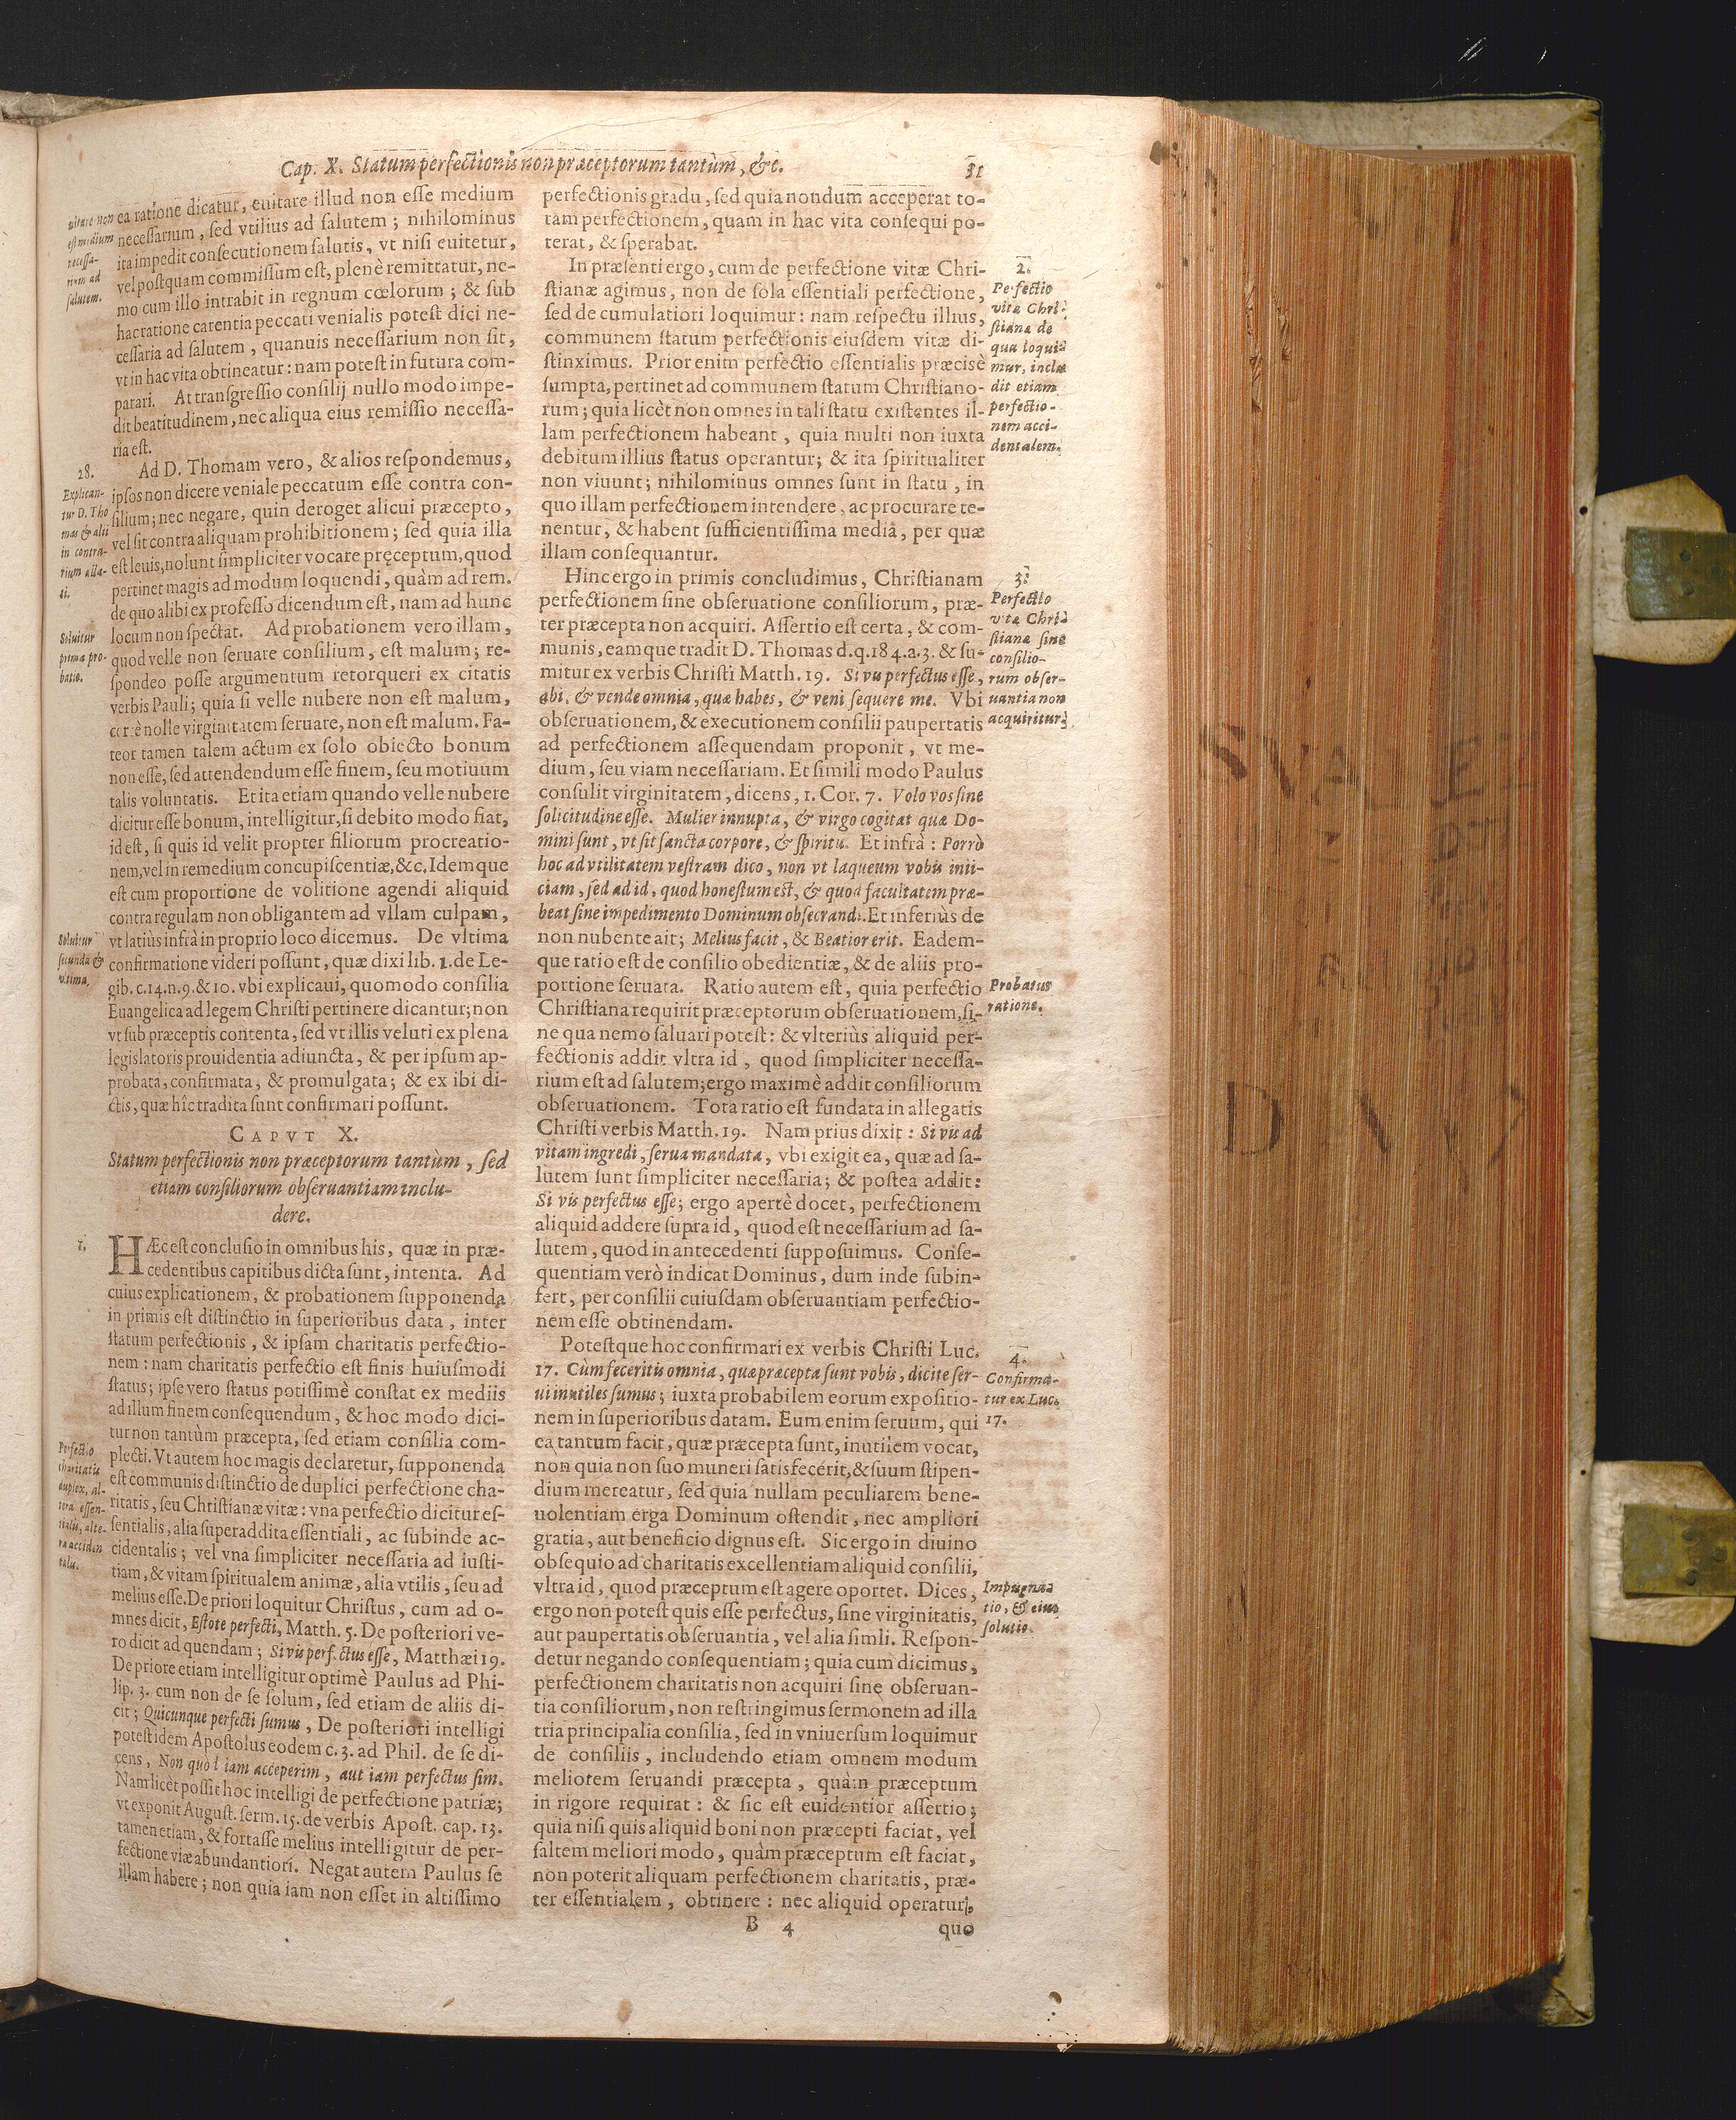 Cap. X. Statum perfectionis non præceptorum tantùm, &c. 31
uitare non
est medium
necessa-
rium ad
salutem.
ea ratione dicatur, euitare illud non esse medium
necessarium, sed vtilius ad salutem; nihilominus
ita impedit consecutionem salutis, vt nisi euitetur,
vel postquam commissum est, plenè remittatur, ne-
mo cum illo intrabit in regnum cœlorum; & sub
hac ratione carentia peccati venialis potest dici ne-
cessaria ad salutem, quanuis necessarium non sit,
vt in hac vita obtineatur: nam potest in futura com-
parari. At transgressio consilij nullo modo impe-
dit beatitudinem, nec aliqua eius remissio necessa-
ria est.
28.
Explican-
tur D. Tho
mas & alii
in contra-
rium alla-
ti.
Ad D. Thomam vero, & alios respondemus,
ipsos non dicere veniale peccatum esse contra con-
silium; nec negare, quin deroget alicui præcepto,
vel sit contra aliquam prohibitionem; sed quia illa
est leuis, nolunt simpliciter vocare pręceptum, quod
pertinet magis ad modum loquendi, quàm ad rem.
de quo alibi ex professo dicendum est, nam ad hunc
locum non spectat. Ad probationem vero illam,
Soluitur
prima pro-
batio.
quod velle non seruare consilium, est malum; re-
spondeo posse argumentum retorqueri ex citatis
verbis Pauli; quia si velle nubere non est malum,
certè nolle virginitatem seruare, non est malum. Fa-
teor tamen talem actum ex solo obiecto bonum
non esse, sed attendendum esse finem, seu motiuum
talis voluntatis. Et ita etiam quando velle nubere
dicitur esse bonum, intelligitur, si debito modo fiat,
id est, si quis id velit propter filiorum procreatio-
nem, vel in remedium concupiscentiæ, &c. Idemque
est cum proportione de volitione agendi aliquid
contra regulam non obligantem ad vllam culpam,
Soluitur
secunda &
vltima.
vt latiùs infrà in proprio loco dicemus. De vltima
confirmatione videri possunt, quæ dixi lib. 1. de Le-
gib. c. 14. n. 9. & 10. vbi explicaui, quomodo consilia
Euangelica ad legem Christi pertinere dicantur; non
vt sub præceptis contenta, sed vt illis veluti ex plena
legislatoris prouidentia adiuncta, & per ipsum ap-
probata, confirmata, & promulgata; & ex ibi di-
ctis, quæ hîc tradita sunt confirmari possunt.
CAPVT X.
Statum perfectionis non præceptorum tantùm, sed
etiam consiliorum obseruantiam inclu-
dere.
1.
HÆc est conclusio in omnibus his, quæ in præ-
cedentibus capitibus dicta sunt, intenta. Ad
cuius explicationem, & probationem supponenda
in primis est distinctio in superioribus data, inter
statum perfectionis, & ipsam charitatis perfectio-
nem: nam charitatis perfectio est finis huiusmodi
status; ipse vero status potissimè constat ex mediis
ad illum finem consequendum, & hoc modo dici-
tur non tantùm præcepta, sed etiam consilia com-
Perfectio
charitatis
duplex, al-
tera essen-
tialis, alte-
ra acciden
talis.
plecti. Vt autem hoc magis declaretur, supponenda
est communis distinctio de duplici perfectione cha-
ritatis, seu Christianæ vitæ: vna perfectio dicitur es-
sentialis, alia superaddita essentiali, ac subinde ac-
cidentalis; vel vna simpliciter necessaria ad iusti-
tiam, & vitam spiritualem animæ, alia vtilis, seu ad
melius esse. De priori loquitur Christus, cum ad o-
mnes dicit, Estote perfecti, Matth. 5. De posteriori ve-
ro dicit ad quendam; Si vis perfectus esse, Matthæi 19.
De priore etiam intelligitur optimè Paulus ad Phi-
lip. 3. cum non de se solum, sed etiam de aliis di-
cit; Quicunque perfecti sumus, De posteriori intelligi
potest idem Apostolus eodem c. 3. ad Phil. de se di-
cens, Non quòd iam acceperim, aut iam perfectus sim.
Nam licèt possit hoc intelligi de perfectione patriæ;
vt exponit August. serm. 15. de verbis Apost. cap. 13.
tamen etiam, & fortasse melius intelligitur de per-
fectione viæ abundantiori. Negat autem Paulus se
illam habere; non quia iam non esset in altissimo
perfectionis gradu, sed quia nondum acceperat to-
tam perfectionem, quam in hac vita consequi po-
terat, & sperabat.
2.
Perfectio
vitæ Chri-
stianæ de
qua loqui-
mur, inclu
dit etiam
perfectio-
nem acci-
dentalem.
In præsenti ergo, cum de perfectione vitæ Chri-
stianæ agimus, non de sola essentiali perfectione,
sed de cumulatiori loquimur: nam respectu illius,
communem statum perfectionis eiusdem vitæ di-
stinximus. Prior enim perfectio essentialis præcisè
sumpta, pertinet ad communem statum Christiano-
rum; quia licèt non omnes in tali statu existentes il-
lam perfectionem habeant, quia multi non iuxta
debitum illius status operantur; & ita spiritualiter
non viuunt; nihilominus omnes sunt in statu, in
quo illam perfectionem intendere, ac procurare te-
nentur, & habent sufficientissima media, per quæ
illam consequantur.
3.
Perfectio
vitæ Chri-
stianæ sine
consilio-
rum obser-
uantia non
acquiritur.
Hinc ergo in primis concludimus, Christianam
perfectionem sine obseruatione consiliorum, præ-
ter præcepta non acquiri. Assertio est certa, & com-
munis, eamque tradit D. Thomas d. q. 184. a. 3. & su-
mitur ex verbis Christi Matth. 19. Si vis perfectus esse,
abi, & vende omnia, quæ habes, & veni sequere me. Vbi
obseruationem, & executionem consilii paupertatis
ad perfectionem assequendam proponit, vt me-
dium, seu viam necessariam. Et simili modo Paulus
consulit virginitatem, dicens, 1. Cor. 7. Volo vos sine
solicitudine esse. Mulier innupta, & virgo cogitat quæ Do-
mini sunt, vt sit sancta corpore, & spiritu. Et infrà: Porrò
hoc ad vtilitatem vestram dico, non vt laqueum vobis inii-
ciam, sed ad id, quod honestum est, & quod facultatem præ-
beat sine impedimento Dominum obsecrandi. Et inferiùs de
non nubente ait; Melius facit, & Beatior erit. Eadem-
que ratio est de consilio obedientiæ, & de aliis pro-
Probatur
ratione.
portione seruata. Ratio autem est, quia perfectio
Christiana requirit præceptorum obseruationem, si-
ne qua nemo saluari potest: & vlteriùs aliquid per-
fectionis addit vltra id, quod simpliciter necessa-
rium est ad salutem; ergo maximè addit consiliorum
obseruationem. Tota ratio est fundata in allegatis
Christi verbis Matth. 19. Nam prius dixit: Si vis ad
vitam ingredi, serua mandata, vbi exigit ea, quæ ad sa-
lutem sunt simpliciter necessaria; & postea addit:
Si vis perfectus esse; ergo apertè docet, perfectionem
aliquid addere supra id, quod est necessarium ad sa-
lutem, quod in antecedenti supposuimus. Conse-
quentiam verò indicat Dominus, dum inde subin-
fert, per consilii cuiusdam obseruantiam perfectio-
nem esse obtinendam.
4.
Confirma-
tur ex Luc.
17.
Potestque hoc confirmari ex verbis Christi Luc.
17. Cùm feceritis omnia, quæ præcepta sunt vobis, dicite ser-
ui inutiles sumus; iuxta probabilem eorum expositio-
nem in superioribus datam. Eum enim seruum, qui
ea tantum facit, quæ præcepta sunt, inutilem vocat,
non quia non suo muneri satisfecerit, & suum stipen-
dium mereatur, sed quia nullam peculiarem bene-
uolentiam erga Dominum ostendit, nec ampliori
gratia, aut beneficio dignus est. Sic ergo in diuino
obsequio ad charitatis excellentiam aliquid consilii,
Impugna-
tio, & eius
solutio.
vltra id, quod præceptum est agere oportet. Dices,
ergo non potest quis esse perfectus, sine virginitatis,
aut paupertatis obseruantia, vel alia simli. Respon-
detur negando consequentiam; quia cum dicimus,
perfectionem charitatis non acquiri sine obseruan-
tia consiliorum, non restringimus sermonem ad illa
tria principalia consilia, sed in vniuersum loquimur
de consiliis, includendo etiam omnem modum
meliorem seruandi præcepta, quàm præceptum
in rigore requirat: & sic est euidentior assertio;
quia nisi quis aliquid boni non præcepti faciat, vel
saltem meliori modo, quàm præceptum est faciat,
non poterit aliquam perfectionem charitatis, præ-
ter essentialem, obtinere: nec aliquid operatur,
B 4 quo